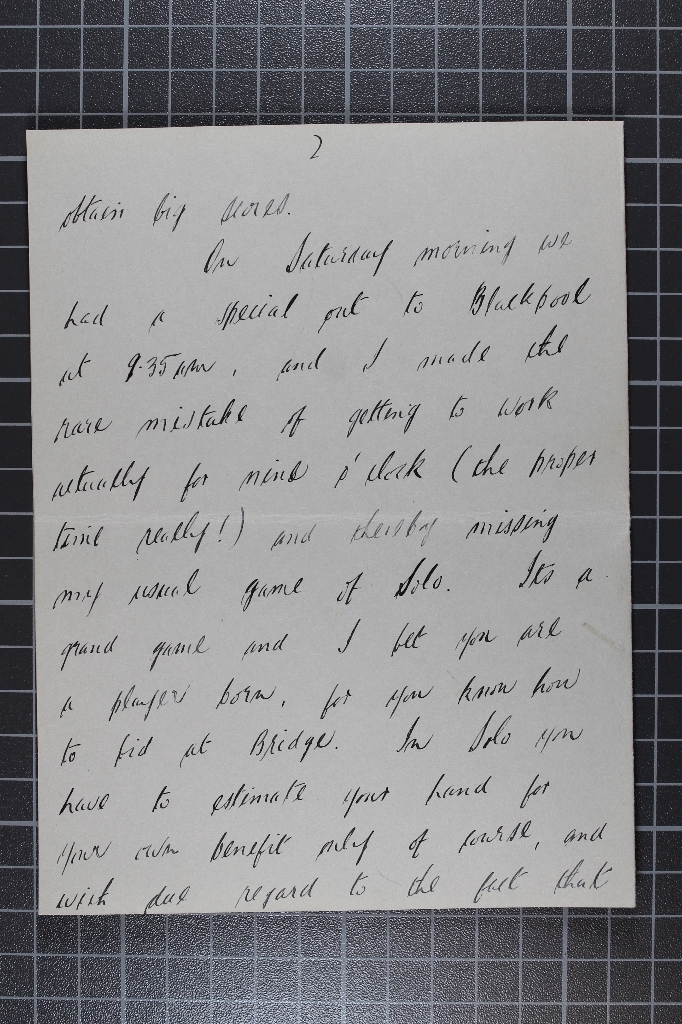 2
obtain big scores.
On Saturday morning we
had a special out to Blackpool
at 9.35 am, and I made the
rare mistake of getting to work
actually for nine o'clock (the proper
time really!) and thereby missing
my usual game of Solo. Its a
grand game and I bet you are
a player born, for you know how
to bid at Bridge. In Solo you
have to estimate your hand for
your own benefit only of course, and
with due regard to the fact that